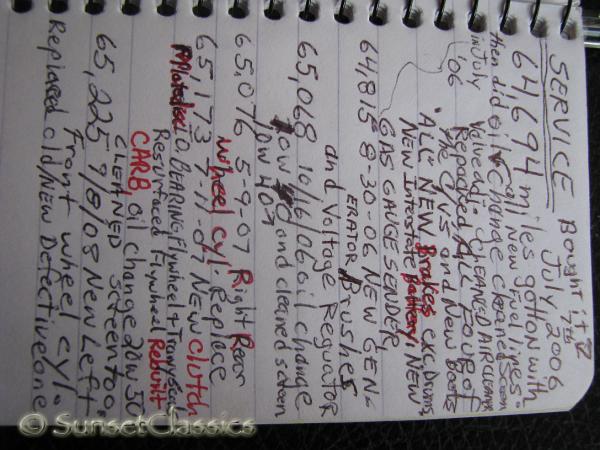 SERVICE Bought it
July 7th 2006
64,694 miles gotton with
all New Fuel lines -
then did oil change cleaned screen
in July Valve adj. CLEANED AIR CLEANER
'06 Repacked ALL FOUR of
The CVS and New Boots
"ALL" NEW Brakes exc. Drums,
NEW Interstate Battery, NEW
GAS GAUGE SENDER,
64,815 8-30-06 NEW GEN-
ERATOR Brushes
and Voltage Reguator
65,068 10/16/06 oil change
and cleaned screen
65,076 5-9-07 Right Rear
wheel cyl. Replace
65,173 NEW clutch
T.O. BEARING, Flywheel +
Resurfaced Flywheel Rebuilt
CARB, oil change 20W50
CLEANED screen too
65,225 9/8/08 New Left
Front wheel cyl.
Replaced old/NEW Defective one
© SunsetClassics